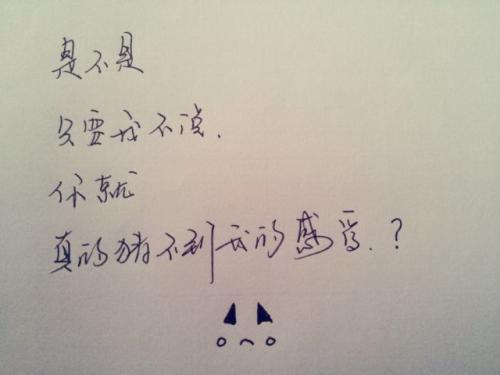 是不是
只要我不说.
你就
真的猜不到我的感受.?